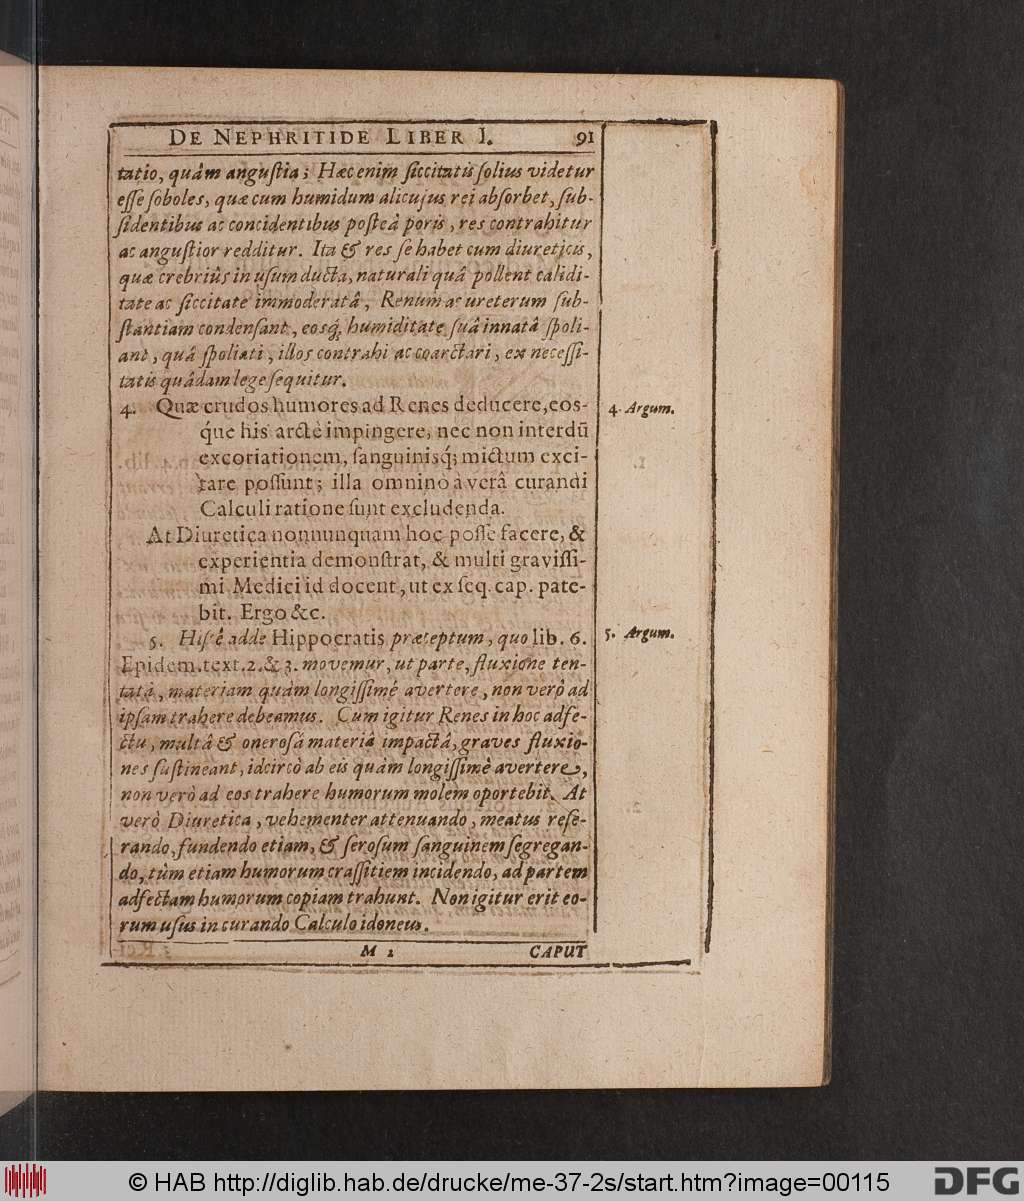 DE NEPHRITIDE LIBER I. 91
tatio, quâm anguſtia; Hæc enim ſiccitatis ſolius videtur
eſſe ſoboles, quæ cum humidum alicujus rei abſorbet, ſub-
ſidentibus ac concidentibus poſteà poris, res contrahitur
ac anguſtior redditur. Ita & res ſe habet cum diureticis,
quæ crebriùs in uſum ducta, naturali quâ pollent calidi-
tate ac ſiccitate immoderatâ, Renum ac ureterum ſub-
ſtantiam condenſant, eosq́; humiditate ſuâ innatâ ſpoli-
ant, quâ ſpoliati, illos contrahi ac coarctari, ex neceſſi-
tatis quâdam lege ſequitur.
4. Quæ crudos humores ad Renes deducere, eos-
q́ue his arctè impingere, nec non interdū
excoriationem, ſanguinisq́; mictum exci-
tare poſſunt; illa omnino à verâ curandi
Calculi ratione ſunt excludenda.
4. Argum.
At Diuretica nonnunquam hoc poſſe facere, &
experientia demonſtrat, & multi graviſſi-
mi Medici id docent, ut ex ſeq. cap. pate-
bit. Ergo &c.
5. Hiſcê adde Hippocratis præceptum, quo lib. 6.
5. Argum.
Epidem. text. 2. & 3. movemur, ut parte, fluxione ten-
tatâ, materiam quàm longiſſimè avertere, non verò ad
ipſam trahere debeamus. Cum igitur Renes in hoc adfe-
ctu, multâ & oneroſâ materiâ impactâ, graves fluxio-
nes ſuſtineant, idcircò ab eis quàm longiſſimè avertere,
non verò ad eos trahere humorum molem oportebit. At
verò Diuretica, vehementer attenuando, meatus reſe-
rando, fundendo etiam, & ſeroſum ſanguinem ſegregan-
do, tùm etiam humorum craſſitiem incidendo, ad partem
adfectam humorum copiam trahunt. Non igitur erit eo-
rum uſus in curando Calculo idoneus.
M 2 CAPUT
© HAB http://diglib.hab.de/drucke/me-37-2s/start.htm?image=00115
DFG